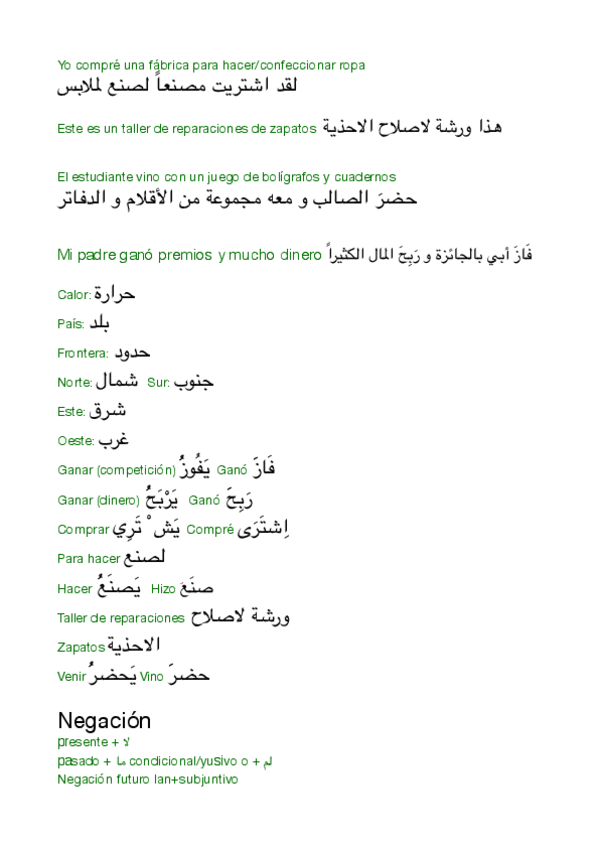 Yo compré una fábrica para hacer/confeccionar ropa
لقد اشتريت مصنعاً لصنع لملابس
Este es un taller de reparaciones de zapatos هذا ورشة لاصلاح الاحذية
El estudiante vino con un juego de bolígrafos y cuadernos
حضرَ الصالب و معه مجموعة من الأقلام و الدفاتر
Mi padre ganó premios y mucho dinero فَازَ أبي بالجائزة و رَبِحَ المال الكثيراً
Calor: حرارة
País: بلد
Frontera: حدود
Norte: شمال Sur: جنوب
Este: شرق
Oeste: غرب
Ganar (competición) يَفُوزُ Ganó فَازَ
Ganar (dinero) يَرْبَحُ Ganó رَبِحَ
Comprar يَشْ تَرِي Compré اِشتَرَى
Para hacer لصنع
Hacer يَصنَعُ Hizo صنَعَ
Taller de reparaciones ورشة لاصلاح
Zapatos الاحذية
Venir يَحضرُ Vino حضرَ
Negación
presente + لا
pasado + ما condicional/yusivo o + لم
Negación futuro lan+subjuntivo